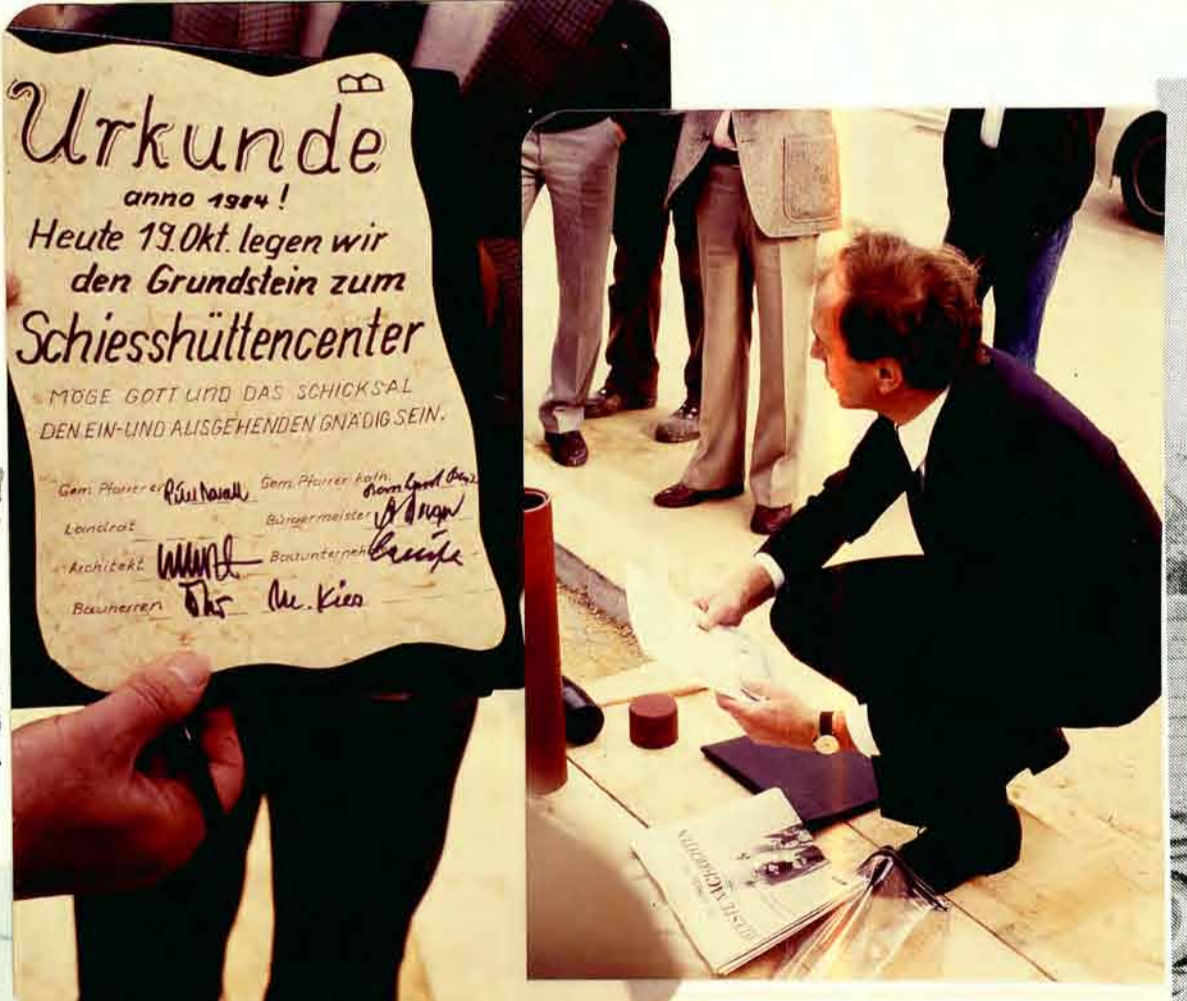 Urkunde
anno 1984!
Heute 19. Okt. legen wir
den Grundstein zum
Schiesshüttencenter
MÖGE GOTT UND DAS SCHICKSAL
DEN EIN- UND AUSGEHENDEN GNÄDIG SEIN.
Gem. Pfarrer ev. Gem. Pfarrer kath.
Landrat Bürgermeister
Architekt Bauunterneh
Bauherren M. Kies